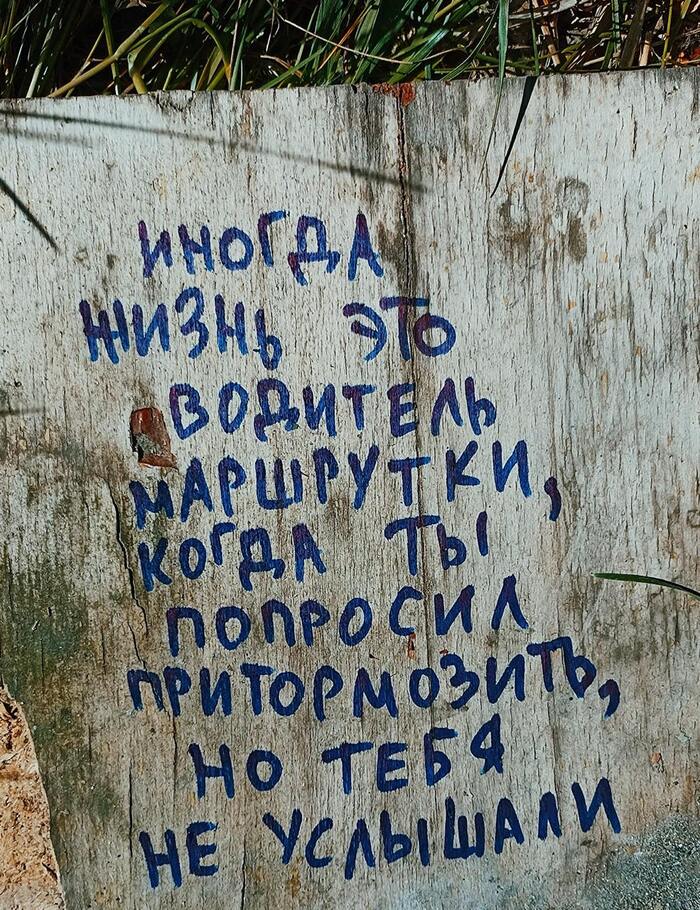 ИНОГДА
ЖИЗНЬ ЭТО
ВОДИТЕЛЬ
МАРШРУТКИ,
КОГДА ТЫ
ПОПРОСИЛ
ПРИТОРМОЗИТЬ,
НО ТЕБЯ
НЕ УСЛЫШАЛИ